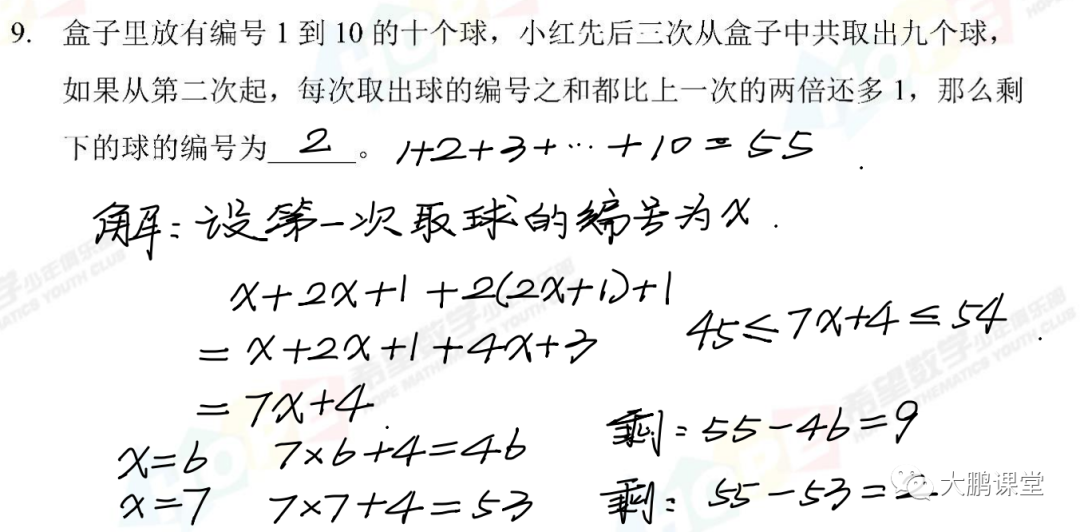 9. 盒子里放有编号 1 到 10 的十个球，小红先后三次从盒子中共取出九个球，
如果从第二次起，每次取出球的编号之和都比上一次的两倍还多 1，那么剩
下的球的编号为 2 。 1+2+3+…+10=55
解：设第一次取球的编号为x.
x+2x+1+2(2x+1)+1
=x+2x+1+4x+3
45≤7x+4≤54
=7x+4
x=6 7×6+4=46 剩：55-46=9
x=7 7×7+4=53 剩：55-53=2
大鹏课堂
希望数学少年俱乐部
HOPE MATHEMATICS YOUTH CLUB